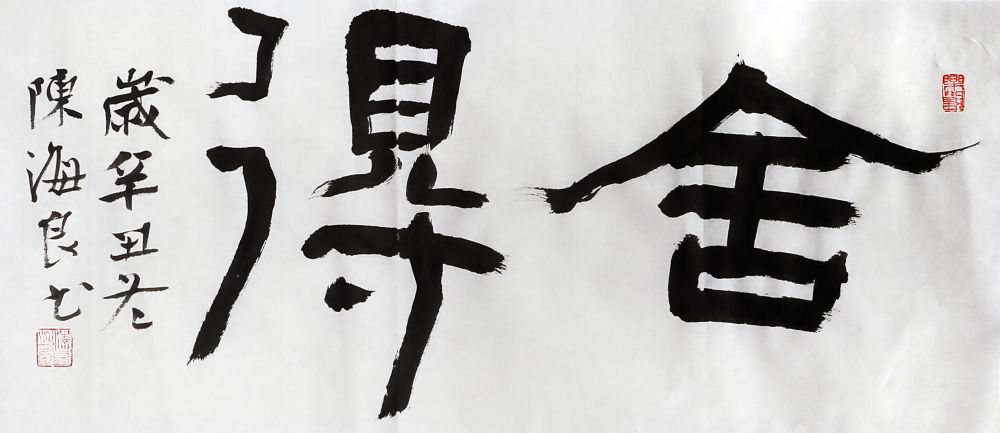 舍得
歲辛丑冬
陳海良书